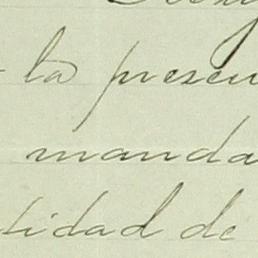 la presen
manda
tidad de